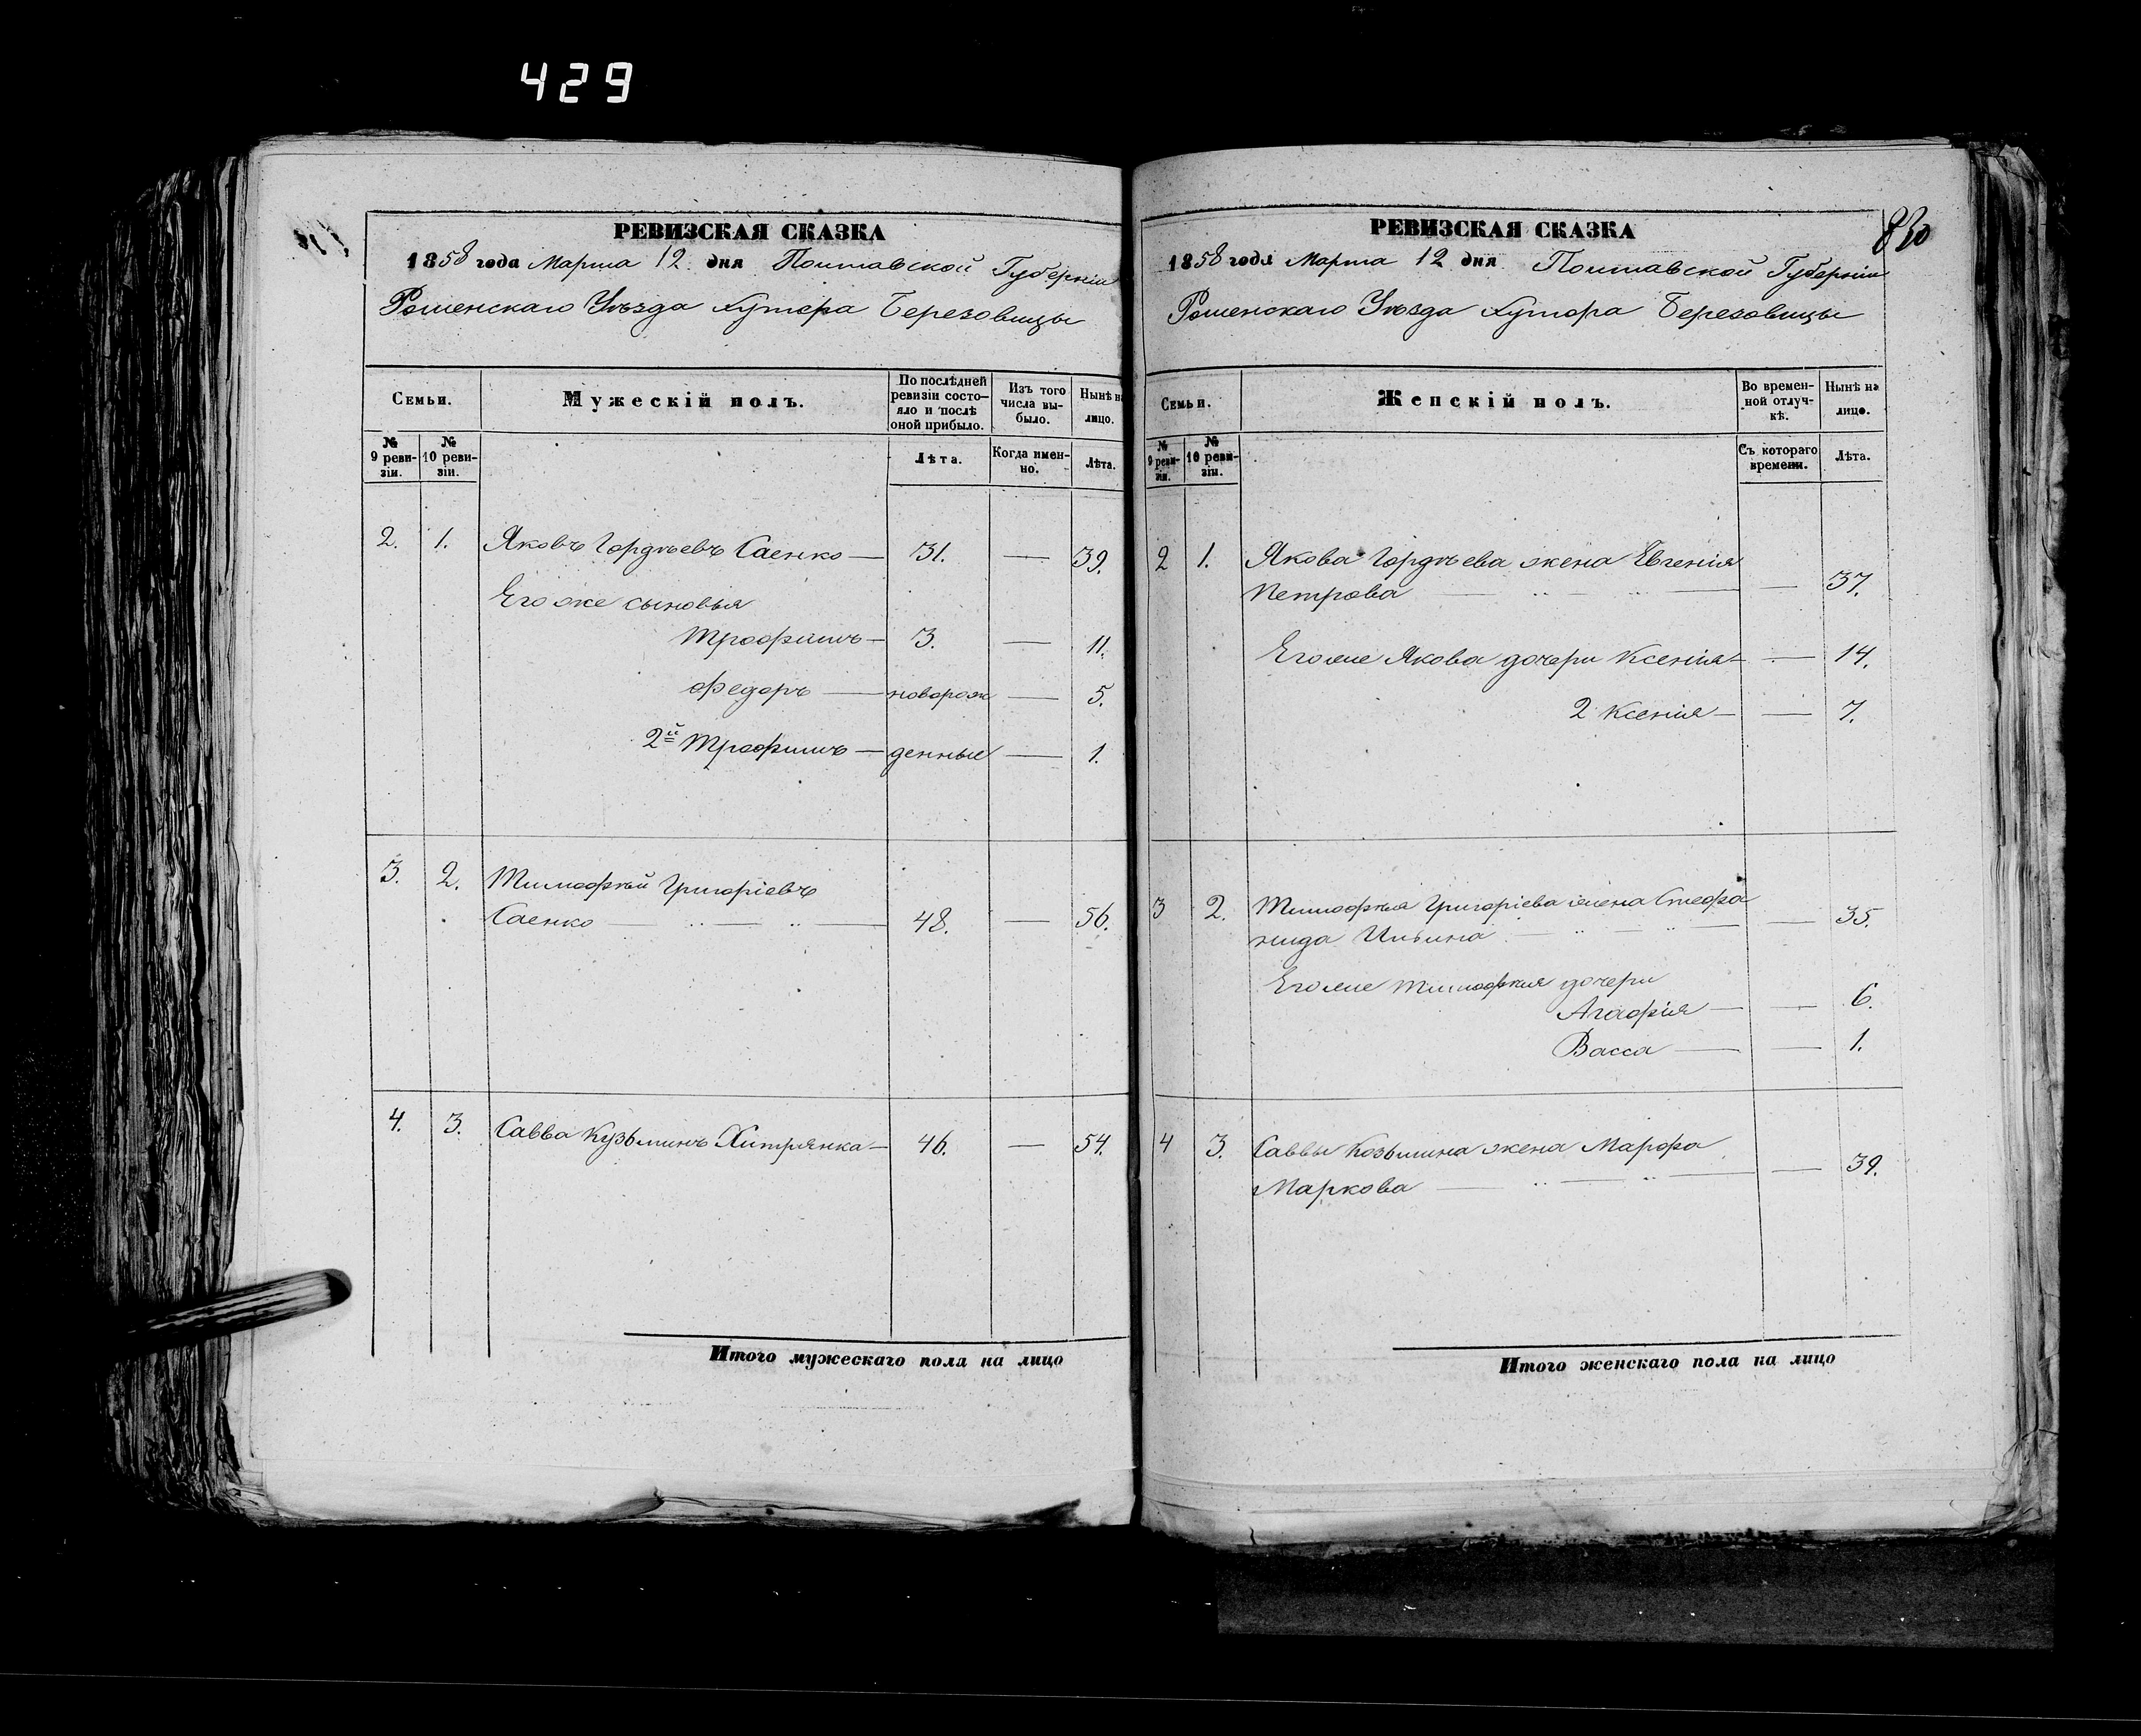 429
РЕВИЗСКАЯ СКАЗКА
1858 года Марта 12 дня Полтавской Губерніи
Роменскаго Уѣзда хутора Березовицы
Семьи.
Мужескій полъ.
По послѣдней ревизіи состояло и послѣ оной прибыло.
Изъ того числа выбыло.
Нынѣ на лицо.
№ 9 ревизіи.
№ 10 ревизіи.
Лѣта.
Когда именно.
Лѣта.
2. 1. Яковъ Гордѣевъ Саенко — 31. — 39.
Его же сыновья
Трофимъ — 3. — 11.
Федоръ — новорож — 5.
2й Трофимъ — денные — 1.
3. 2. Тимофѣй Григоріевъ
Саенко — 48. — 56.
4. 3. Савва Кузьминъ Хитрянка — 46. — 54.
Итого мужескаго пола на лицо
830
РЕВИЗСКАЯ СКАЗКА
1858 года Марта 12 дня Полтавской Губерніи
Роменскаго Уѣзда хутора Березовицы
Семьи.
Женскій полъ.
Во временной отлучкѣ.
Нынѣ на лицо.
№ 9 ревизіи.
№ 10 ревизіи.
Съ котораго времени.
Лѣта.
2 1. Якова Гордѣева жена Евгенія
Петрова — — 37.
Его же Якова дочери Ксенія — — 14.
2 Ксенія — — 7.
3 2. Тимофѣя Григоріева жена Стефа
нида Ильина — — 35.
Его же Тимофѣя дочери
Агафія — — 6.
Васса — — 1.
4 3. Саввы Козьмина жена Марфа
Маркова — — 39.
Итого женскаго пола на лицо